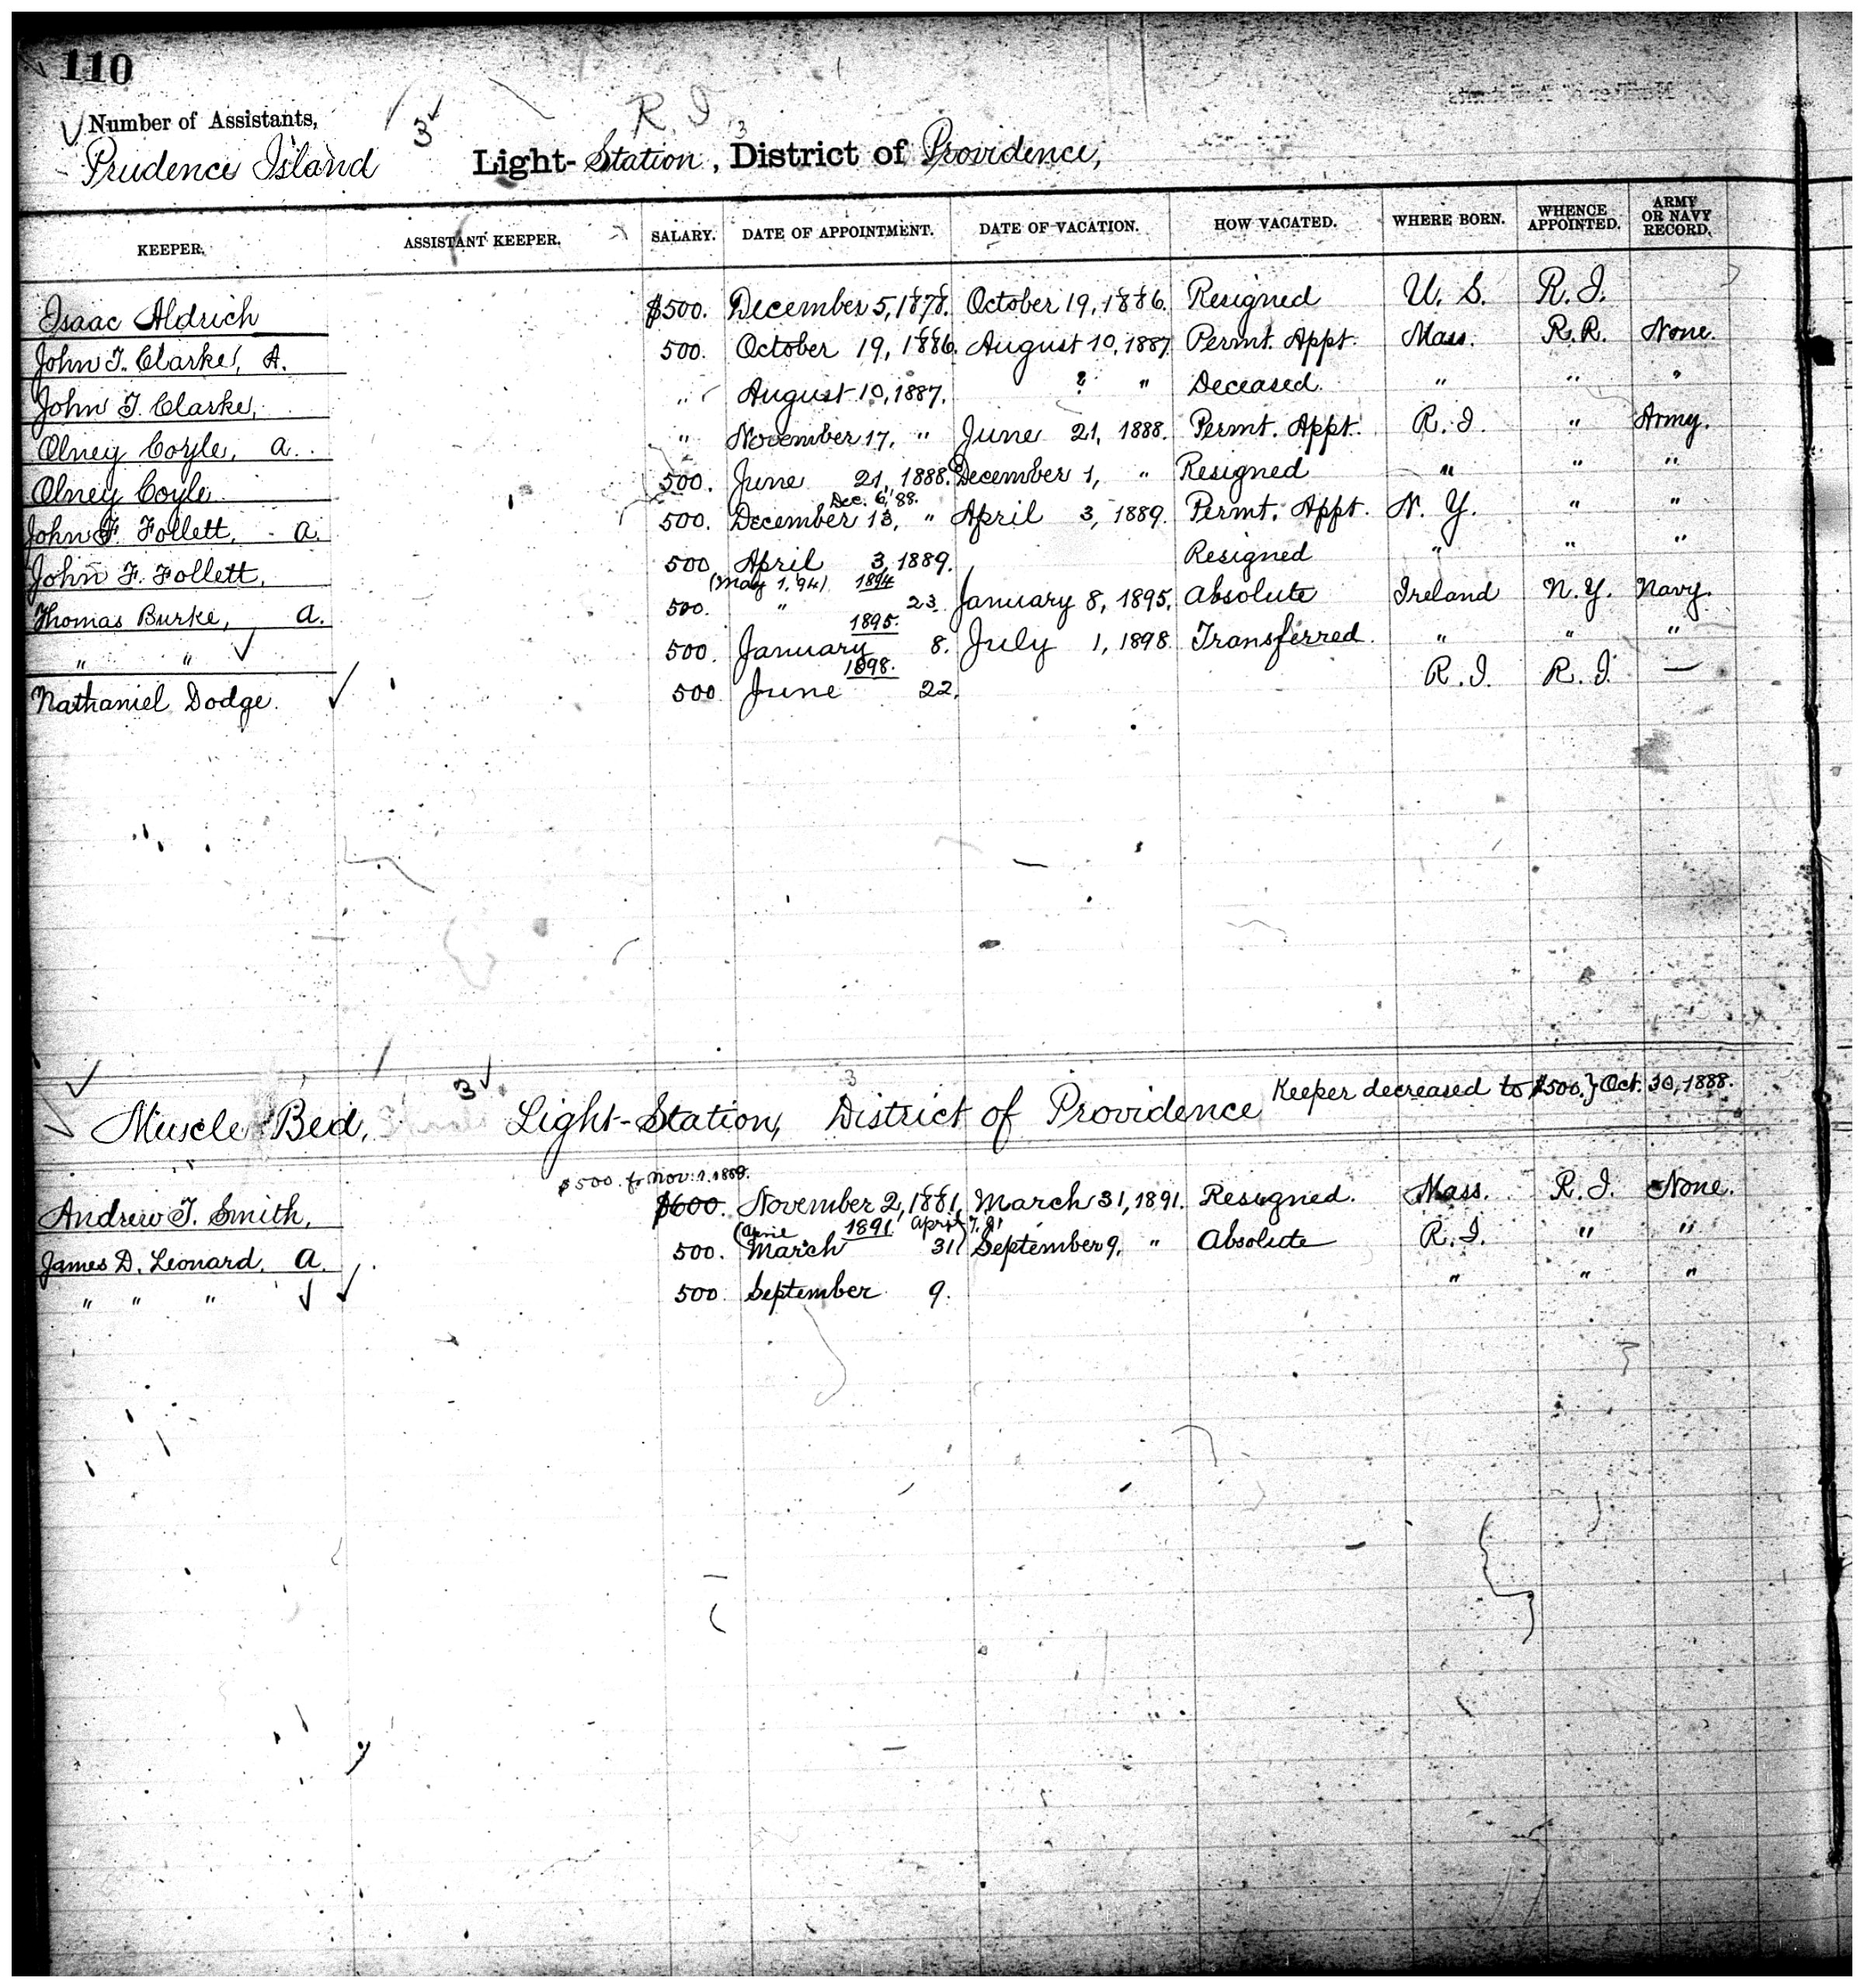 110
R. I.
Number of Assistants, 3
Prudence Island Light-Station, District of Providence,
KEEPER. ASSISTANT KEEPER. SALARY. DATE OF APPOINTMENT. DATE OF VACATION. HOW VACATED. WHERE BORN. WHENCE APPOINTED. ARMY OR NAVY RECORD.
Isaac Aldrich $500. December 5, 1878. October 19, 1886. Resigned U. S. R. I.
John T. Clarke, A. 500. October 19, 1886. August 10, 1887. Permt. Appt. Mass. R. R. None.
John T. Clarke, " August 10, 1887. ? " Deceased. " " "
Olney Coyle, a. " November 17, " June 21, 1888. Permt. Appt. R. I. " Army.
Olney Coyle 500. June 21, 1888. December 1, " Resigned " " "
Dec. 6, '88.
John F. Follett, a. 500. December 13, " April 3, 1889. Permt. Appt. N. Y. " "
John F. Follett, 500 April 3, 1889. Resigned " " "
(May 1, '94) 1894
Thomas Burke, a. 500. " 23. January 8, 1895. Absolute Ireland N. Y. Navy.
1895.
" " 500. January 8. July 1, 1898. Transferred. " " "
1898.
Nathaniel Dodge. 500 June 22. R. I. R. I. —
3
Muscle Bed, 3 Light-Station, District of Providence Keeper decreased to $500.} Oct. 30, 1888.
$500. fr Nov. 1. 1888.
Andrew T. Smith, $600. November 2, 1881. March 31, 1891. Resigned. Mass. R. I. None.
1891. April 7, 91
James D. Leonard, a. 500. March 31 September 9, " Absolute R. I. " "
" " " 500. September 9. " " "